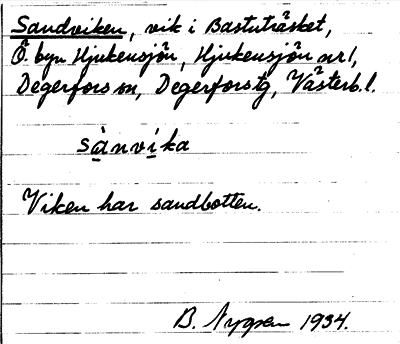 Sandviken, vik i Bastuträsket,
Ö. byn Hjukensjön, Hjukensjön nr 1,
Degerfors sn, Degerfors tg, Västerb. l.
sànvika
Viken har sandbotten.
B. Nygren 1934.